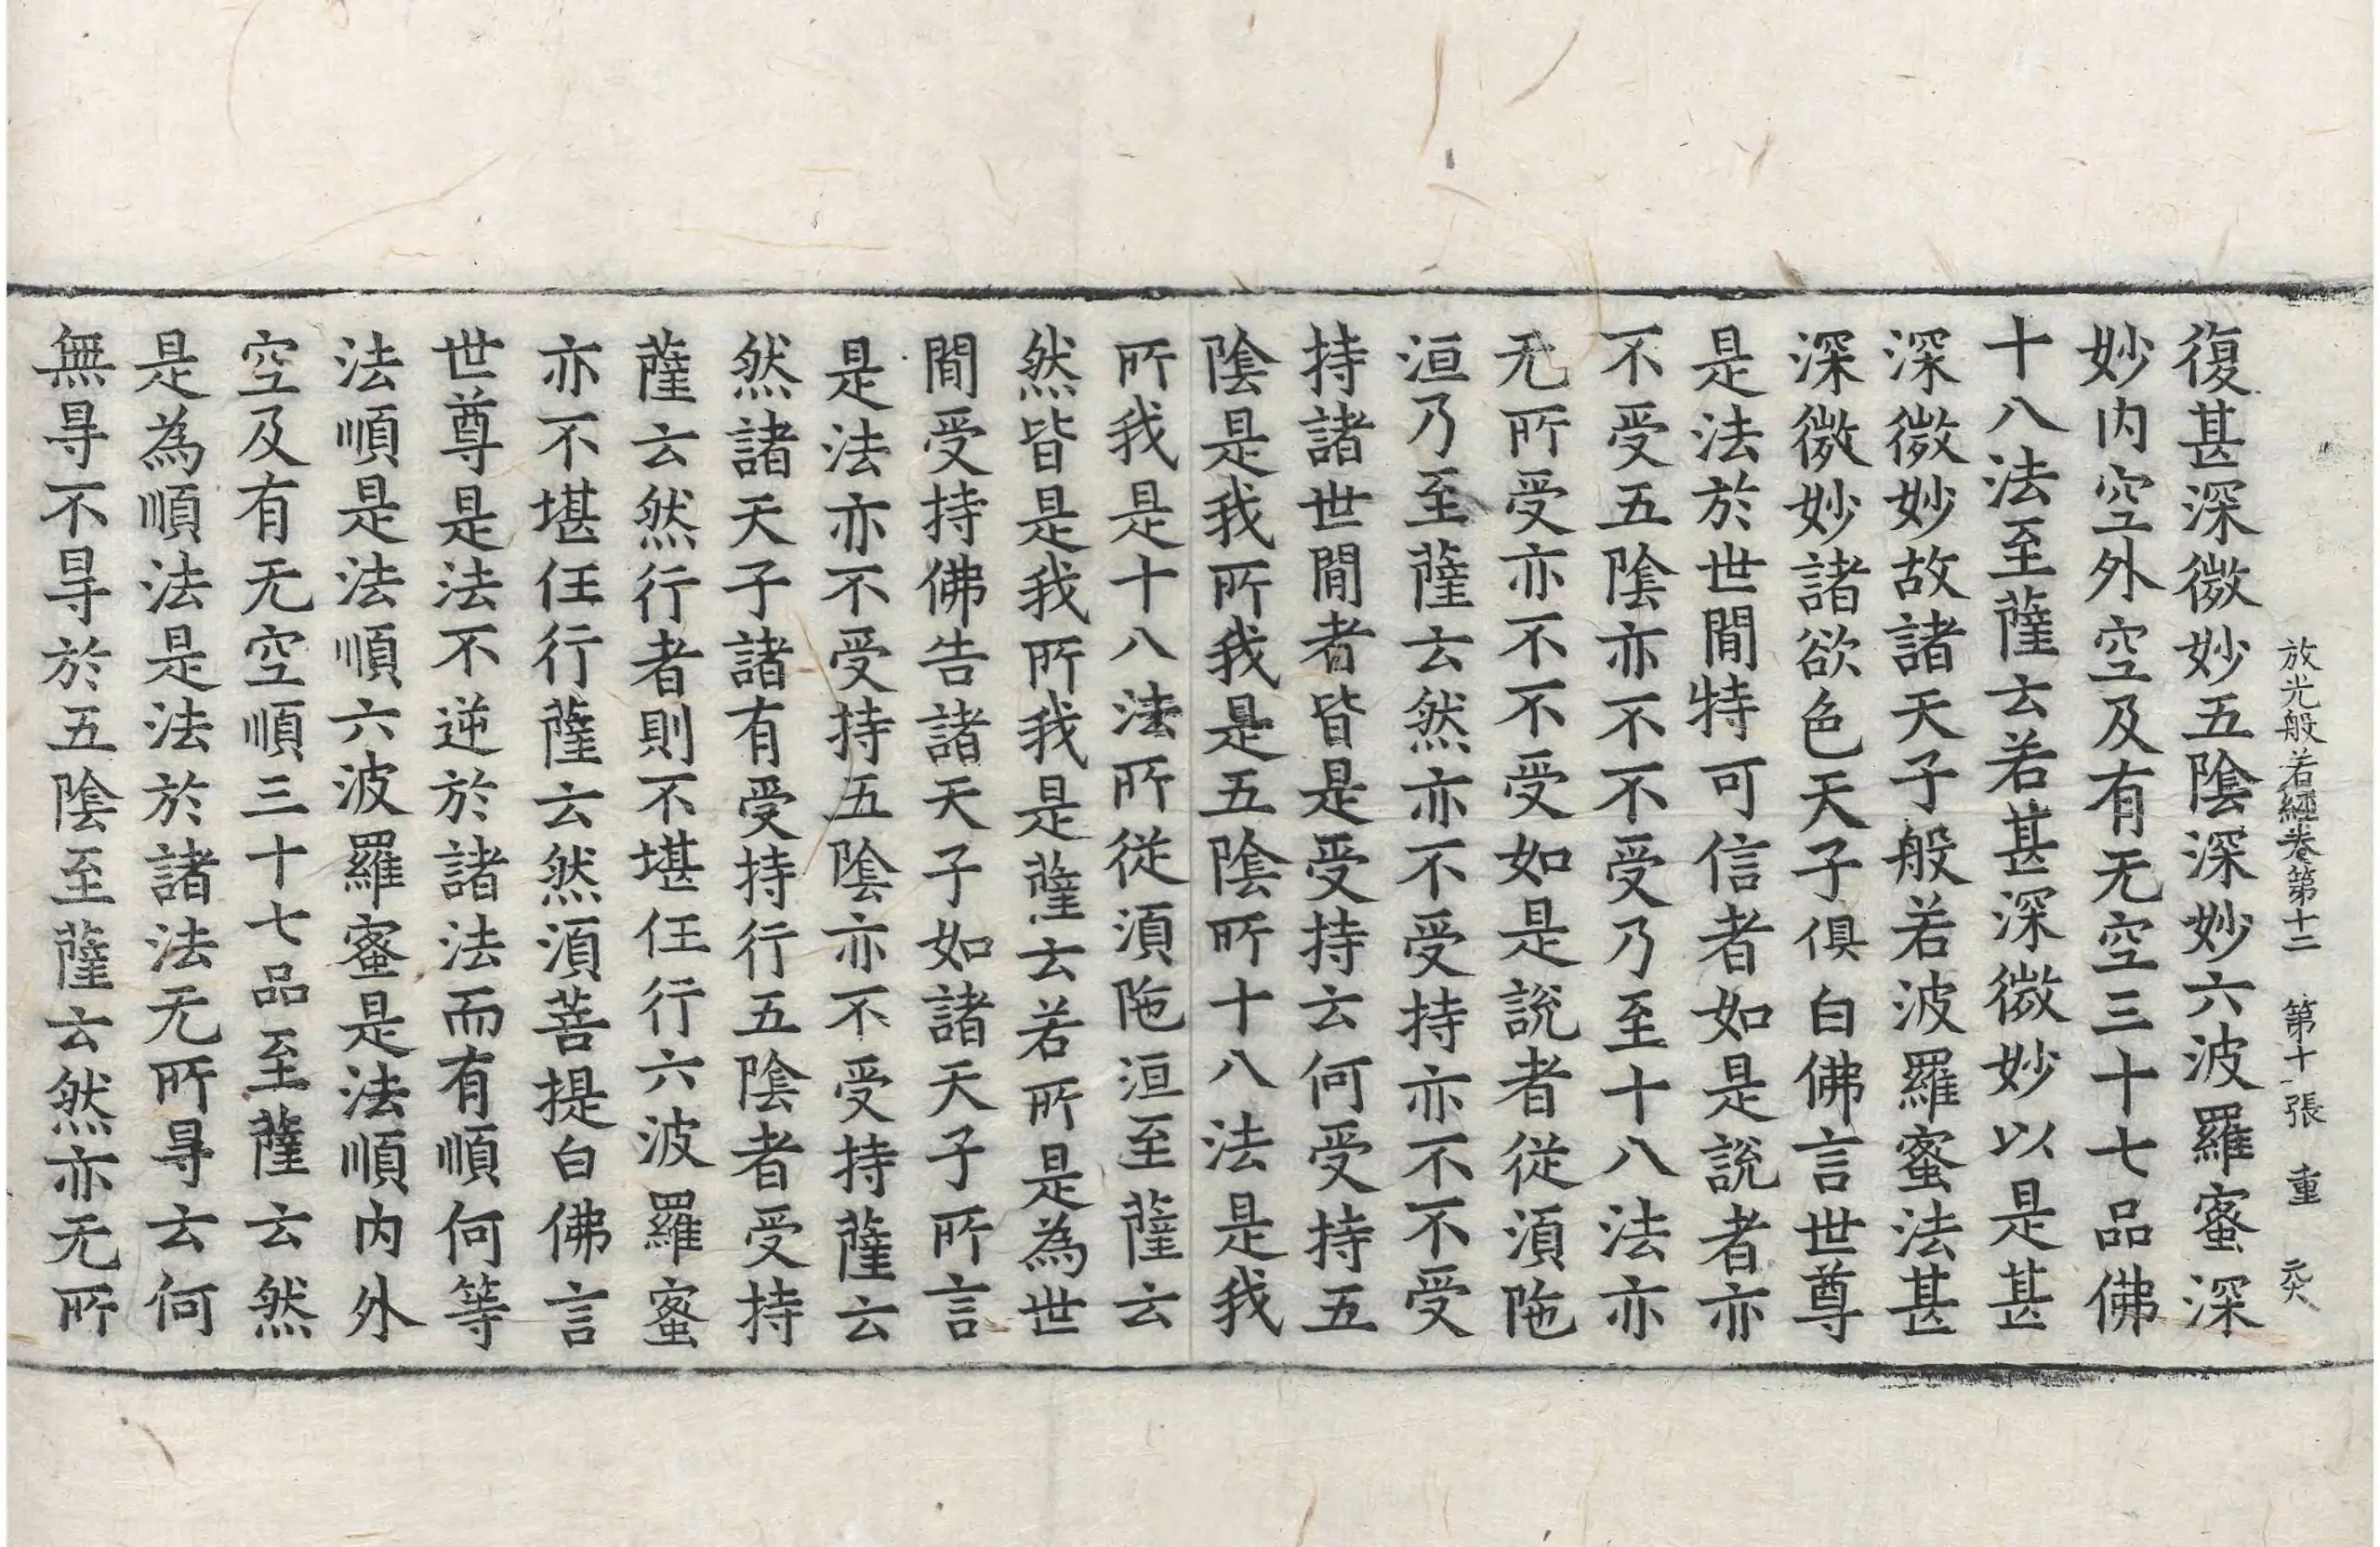 放光般若經卷第十二 第十張 重
復甚深微妙五陰深妙六波羅蜜深
妙内空外空及有无空三十七品佛
十八法至薩云若甚深微妙以是甚
深微妙故諸天子般若波羅蜜法甚
深微妙諸欲色天子俱白佛言世尊
是法於世間特可信者如是說者亦
不受五陰亦不不受乃至十八法亦
无所受亦不不受如是說者從湏陁
洹乃至薩云然亦不受持亦不不受
持諸世間者皆是受持云何受持五
陰是我所我是五陰所十八法是我
所我是十八法所從湏陁洹至薩云
然皆是我所我是薩云若所是為世
間受持佛告諸天子如諸天子所言
是法亦不受持五陰亦不受持薩云
然諸天子諸有受持行五陰者受持
薩云然行者則不堪任行六波羅蜜
亦不堪任行薩云然湏菩提白佛言
世尊是法不逆於諸法而有順何等
法順是法順六波羅蜜是法順内外
空及有无空順三十七品至薩云然
是為順法是法於諸法无所㝵云何
無㝵不㝵於五陰至薩云然亦无所